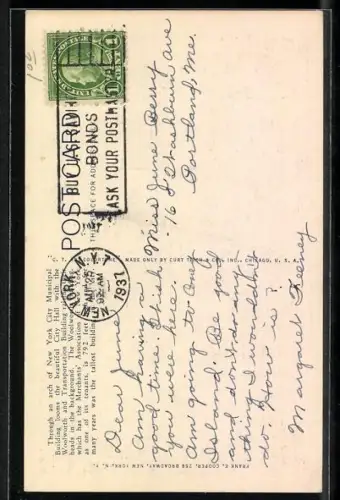 100
1
1
POST CARD
BUY U.S. SAVINGS
BONDS
ASK YOUR POSTMASTER
THIS SPACE FOR ADDRESS
NEW YORK, N.Y.
1937
AM
Through an arch of New York City Municipal
Building looms the beautiful City Hall with the
Woolworth and Transportation Building
heads in the background. The Woolworth
which has the Merchants' Association
as one of its tenants, is 792 feet
many years was the tallest building
MADE ONLY BY CURT TEICH & CO., INC., CHICAGO, U.S.A.
FRANK E. COOPER, 298 BROADWAY, NEW YORK, N.Y.
Dear June
Am having a
good time. Wish
you were here.
am going to Coney
Island. Be good
and don't do any-
thing I wouldn't
do. How is ?
Margaret Feeney
Miss June Berry
16 Washburn ave
Portland, Me.